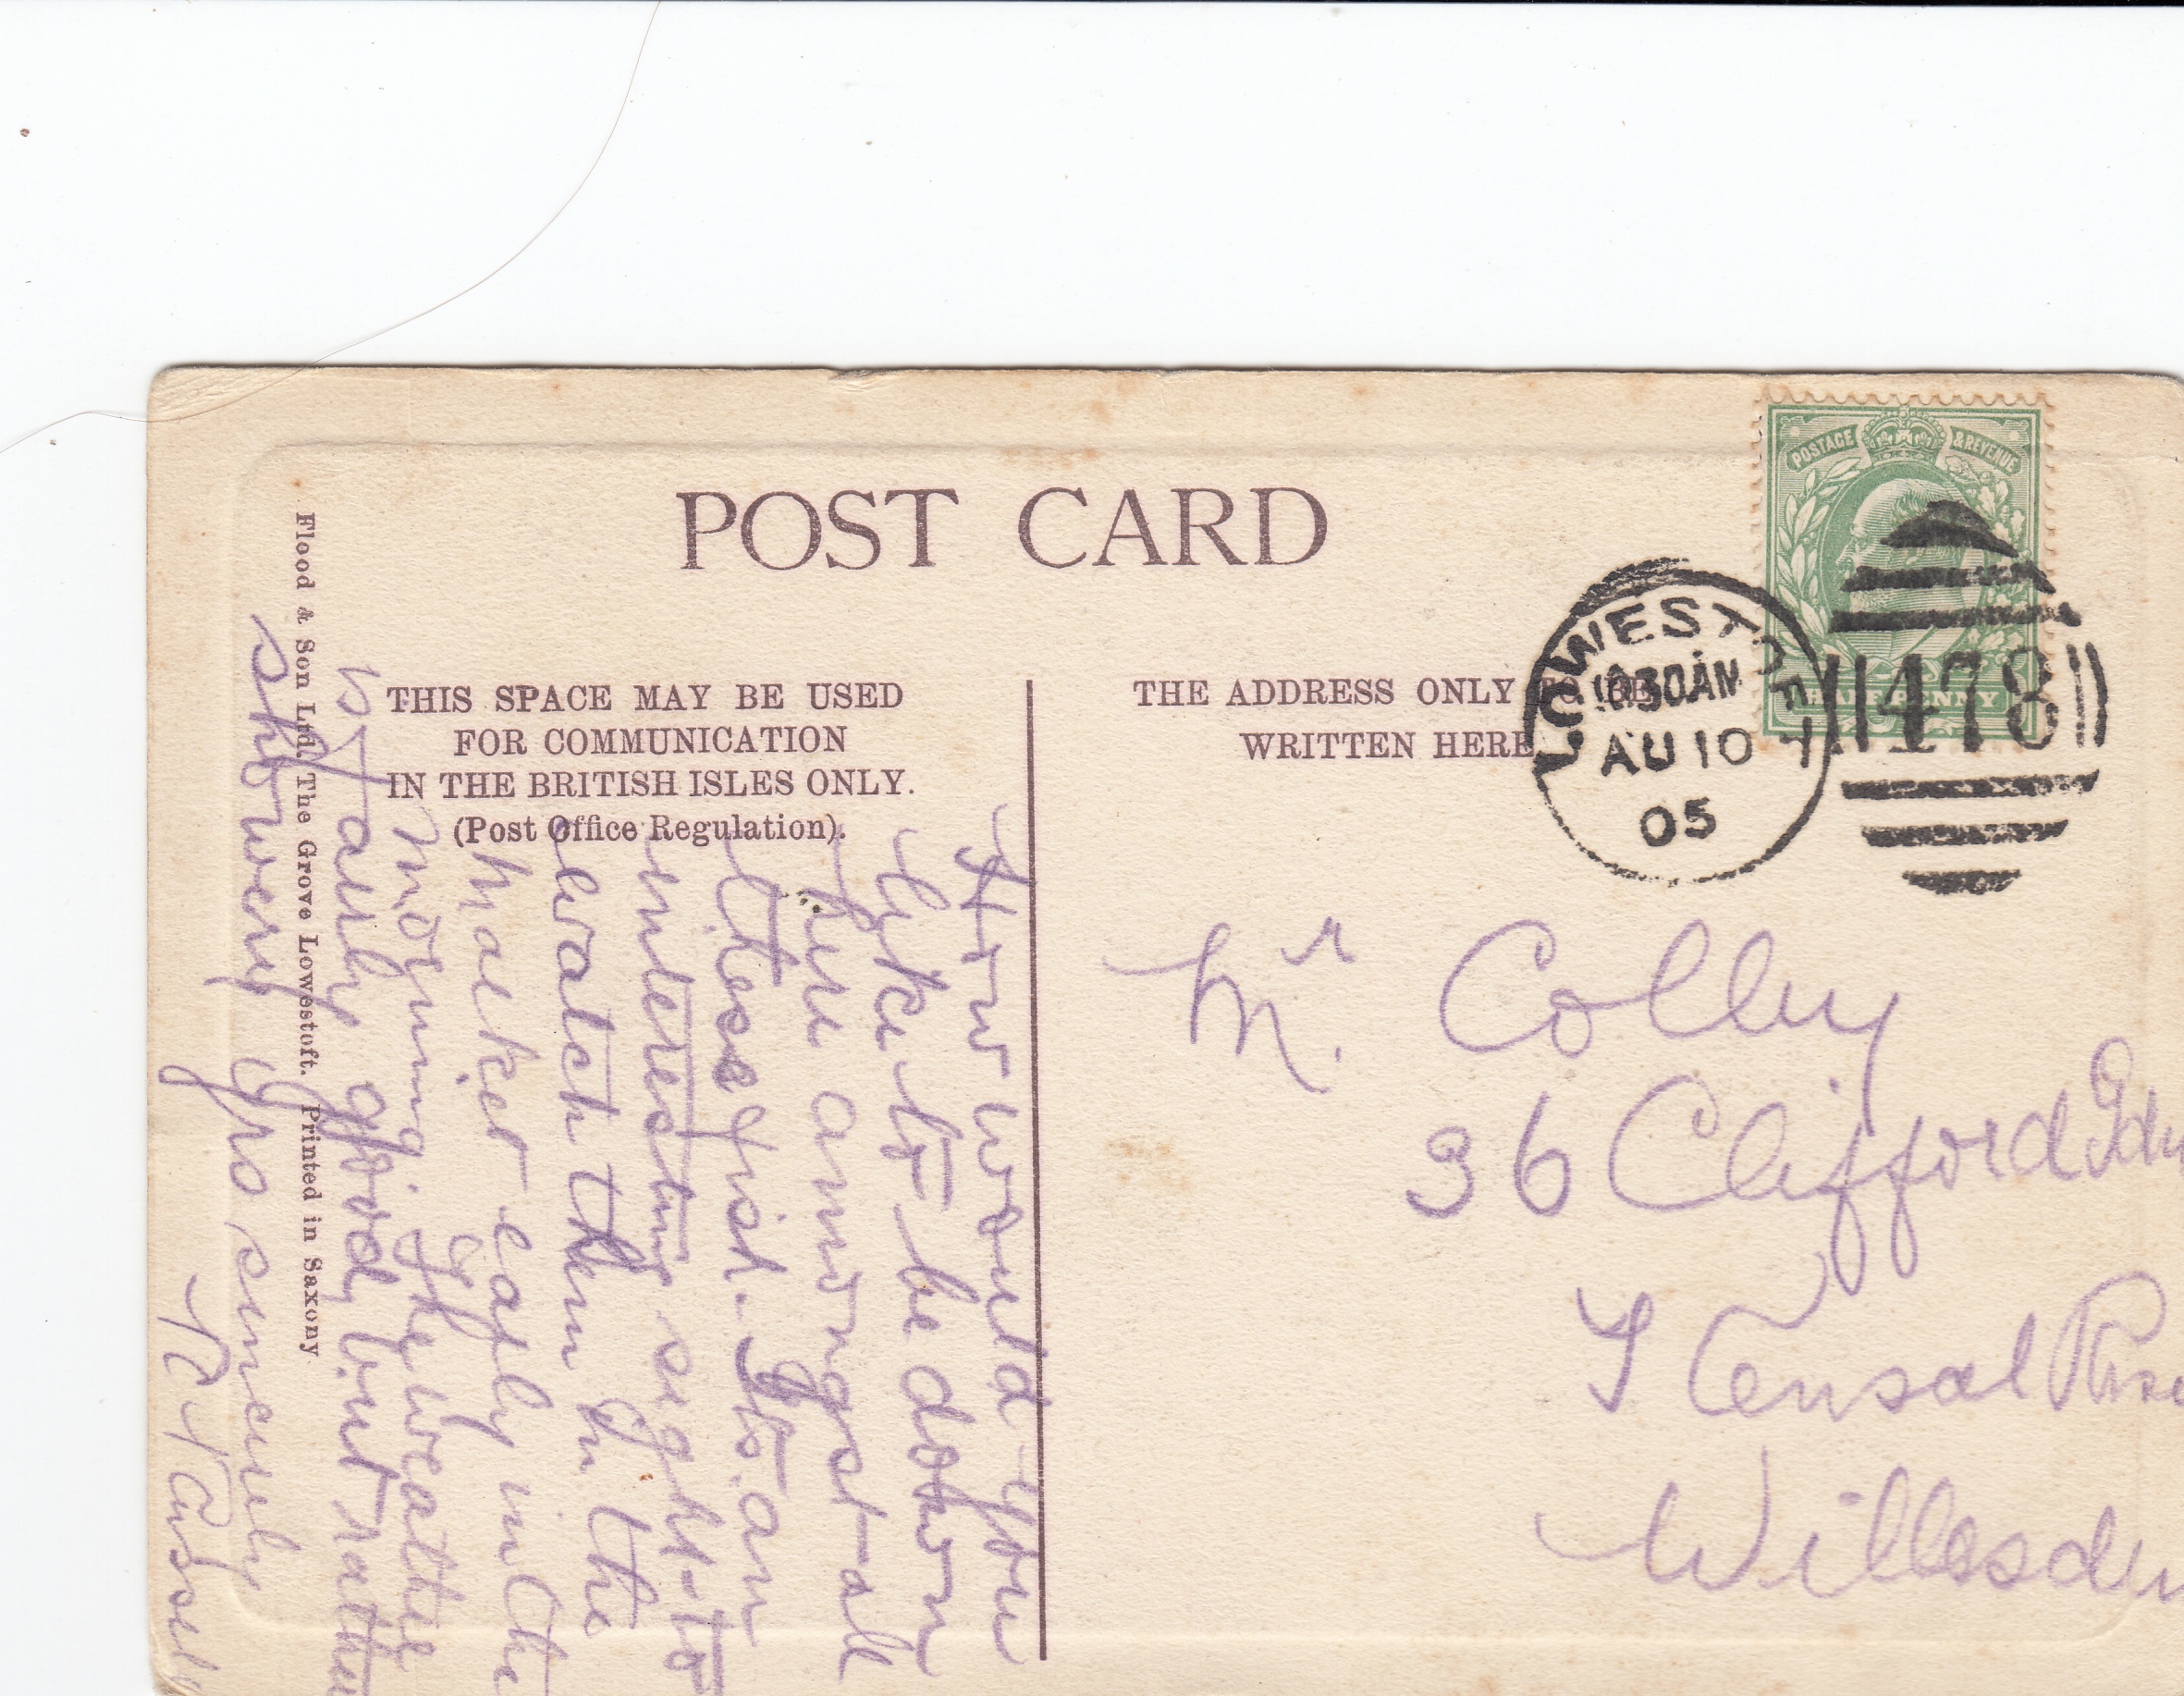 POST CARD
THIS SPACE MAY BE USED
FOR COMMUNICATION
IN THE BRITISH ISLES ONLY.
(Post Office Regulation).
THE ADDRESS ONLY TO BE
WRITTEN HERE
POSTAGE & REVENUE
HALF PENNY
LOWESTOFT
10 30 AM
AU 10
05
478
Mr. Colby
36 Clifford Gdns
Kensal Rise
Willesden
How would you
like to be down
here amongst all
these fish. Its an
interesting sight to
watch them in the
market early in the
morning. The weather
is fairly good but rather
showery Yrs sincerely
Flood & Son Ltd. The Grove Lowestoft. Printed in Saxony